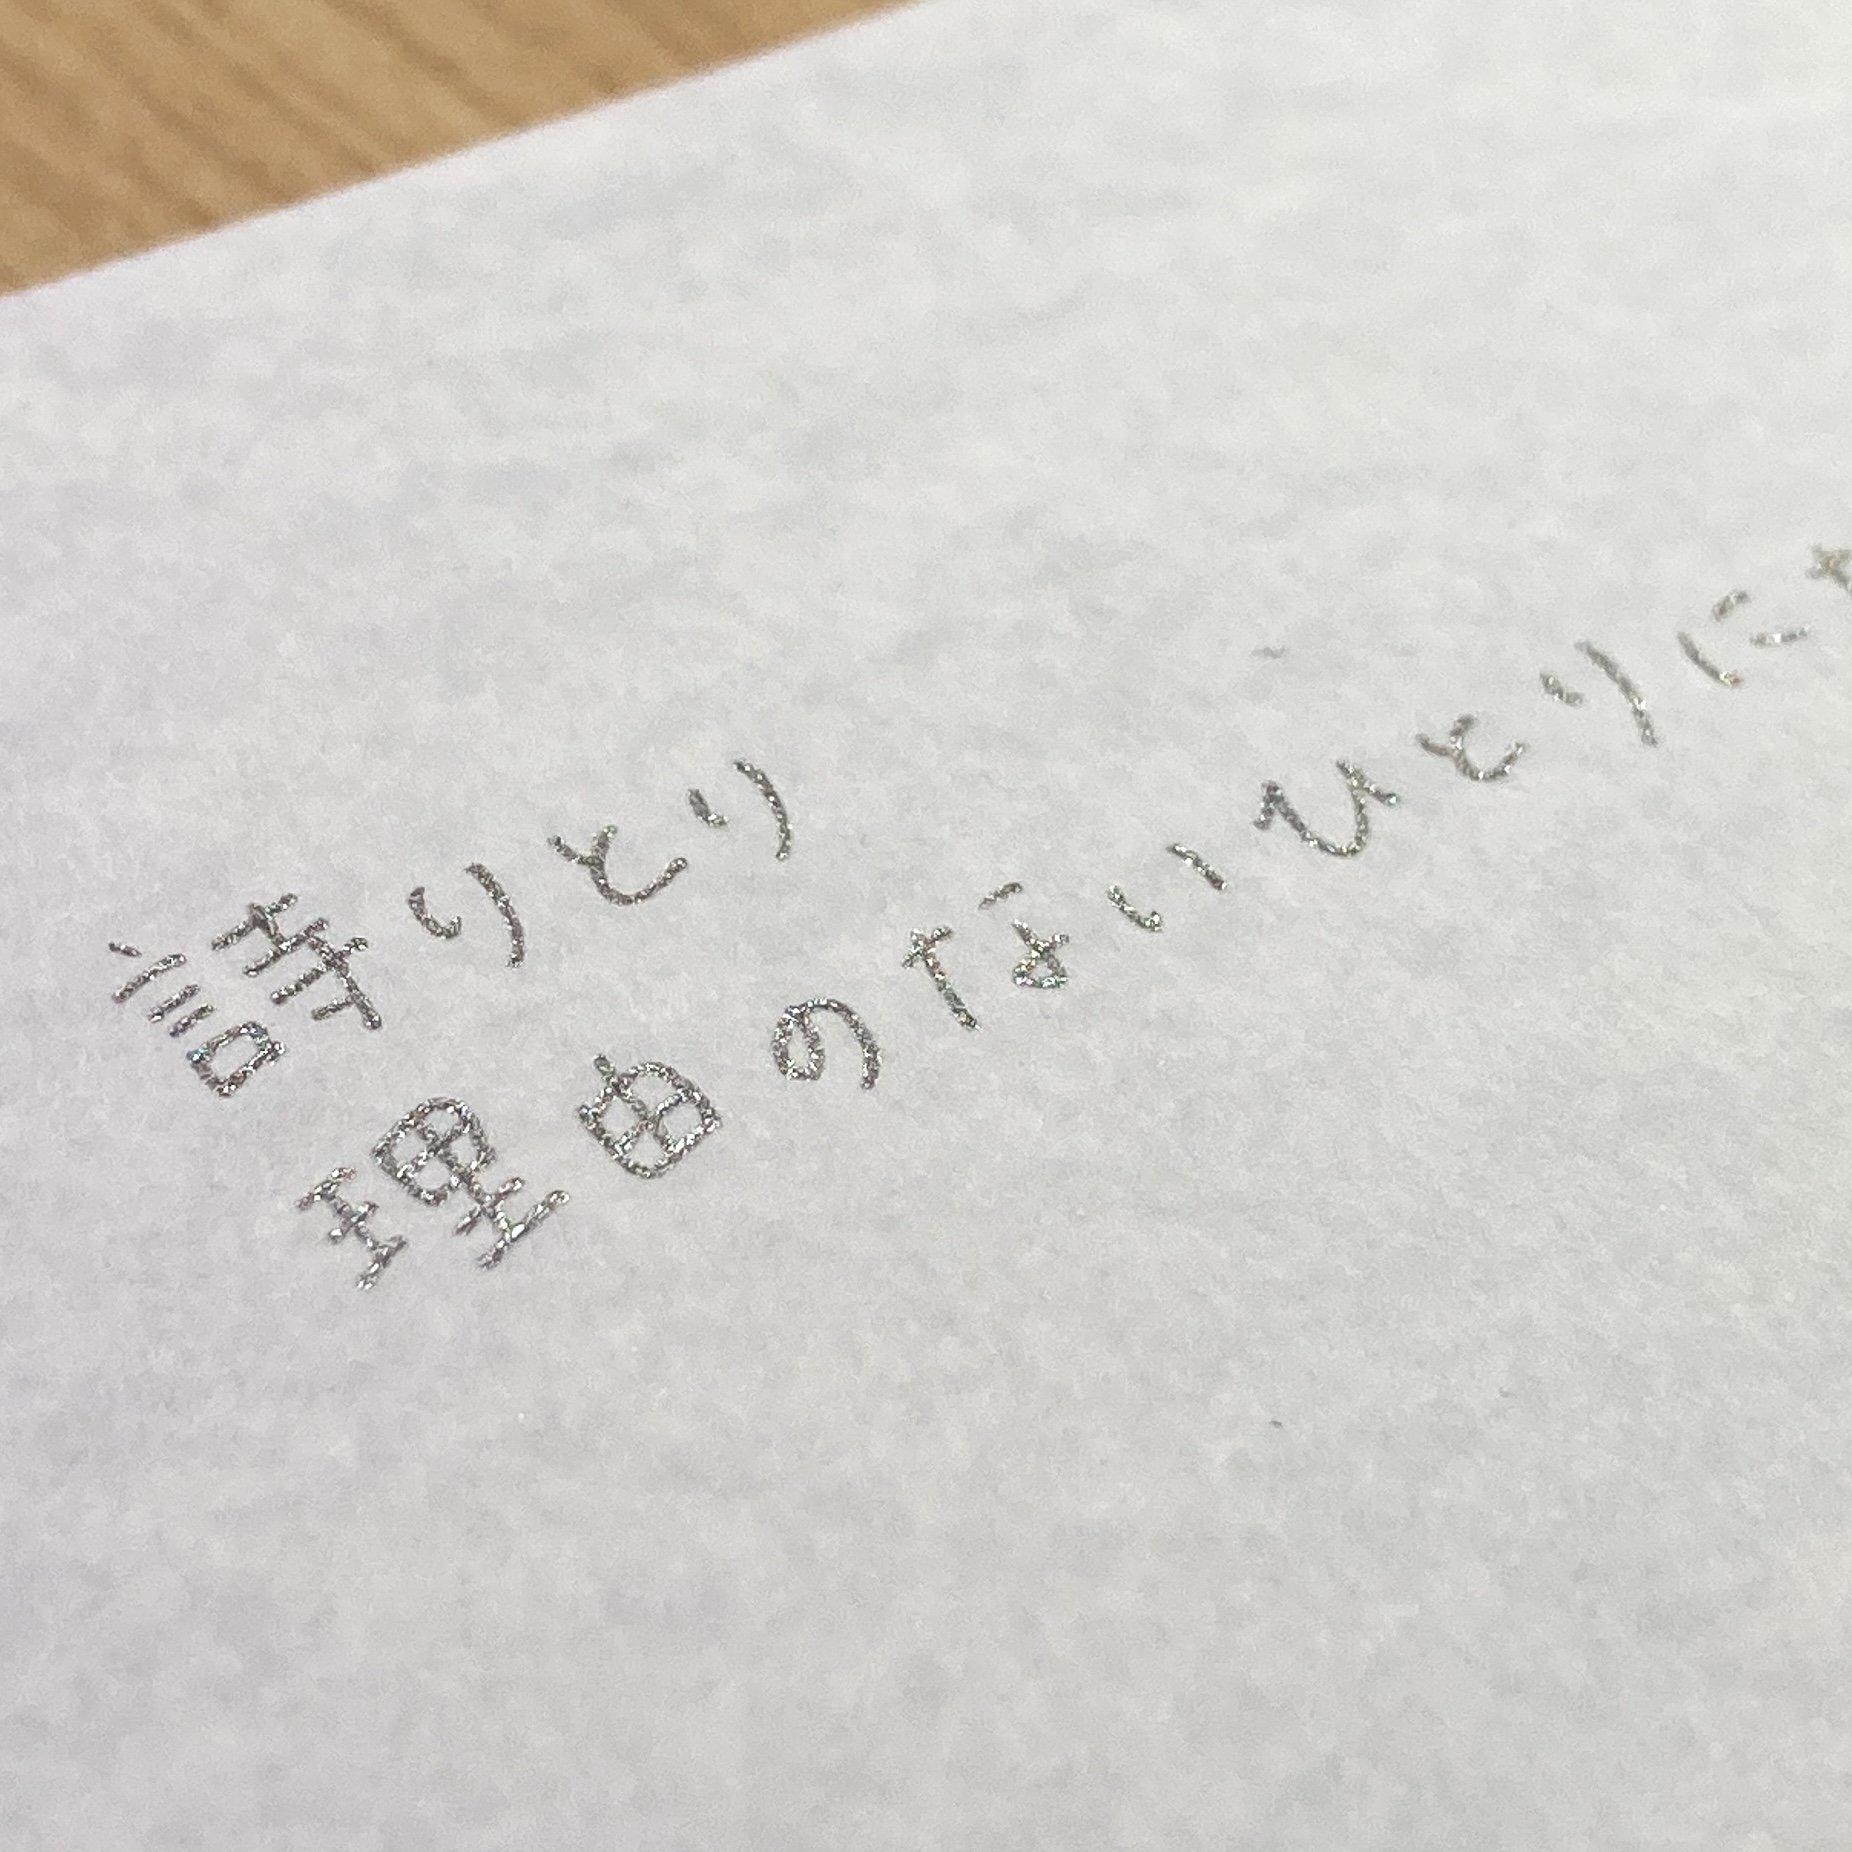 詩りとり
理由のないひとりに